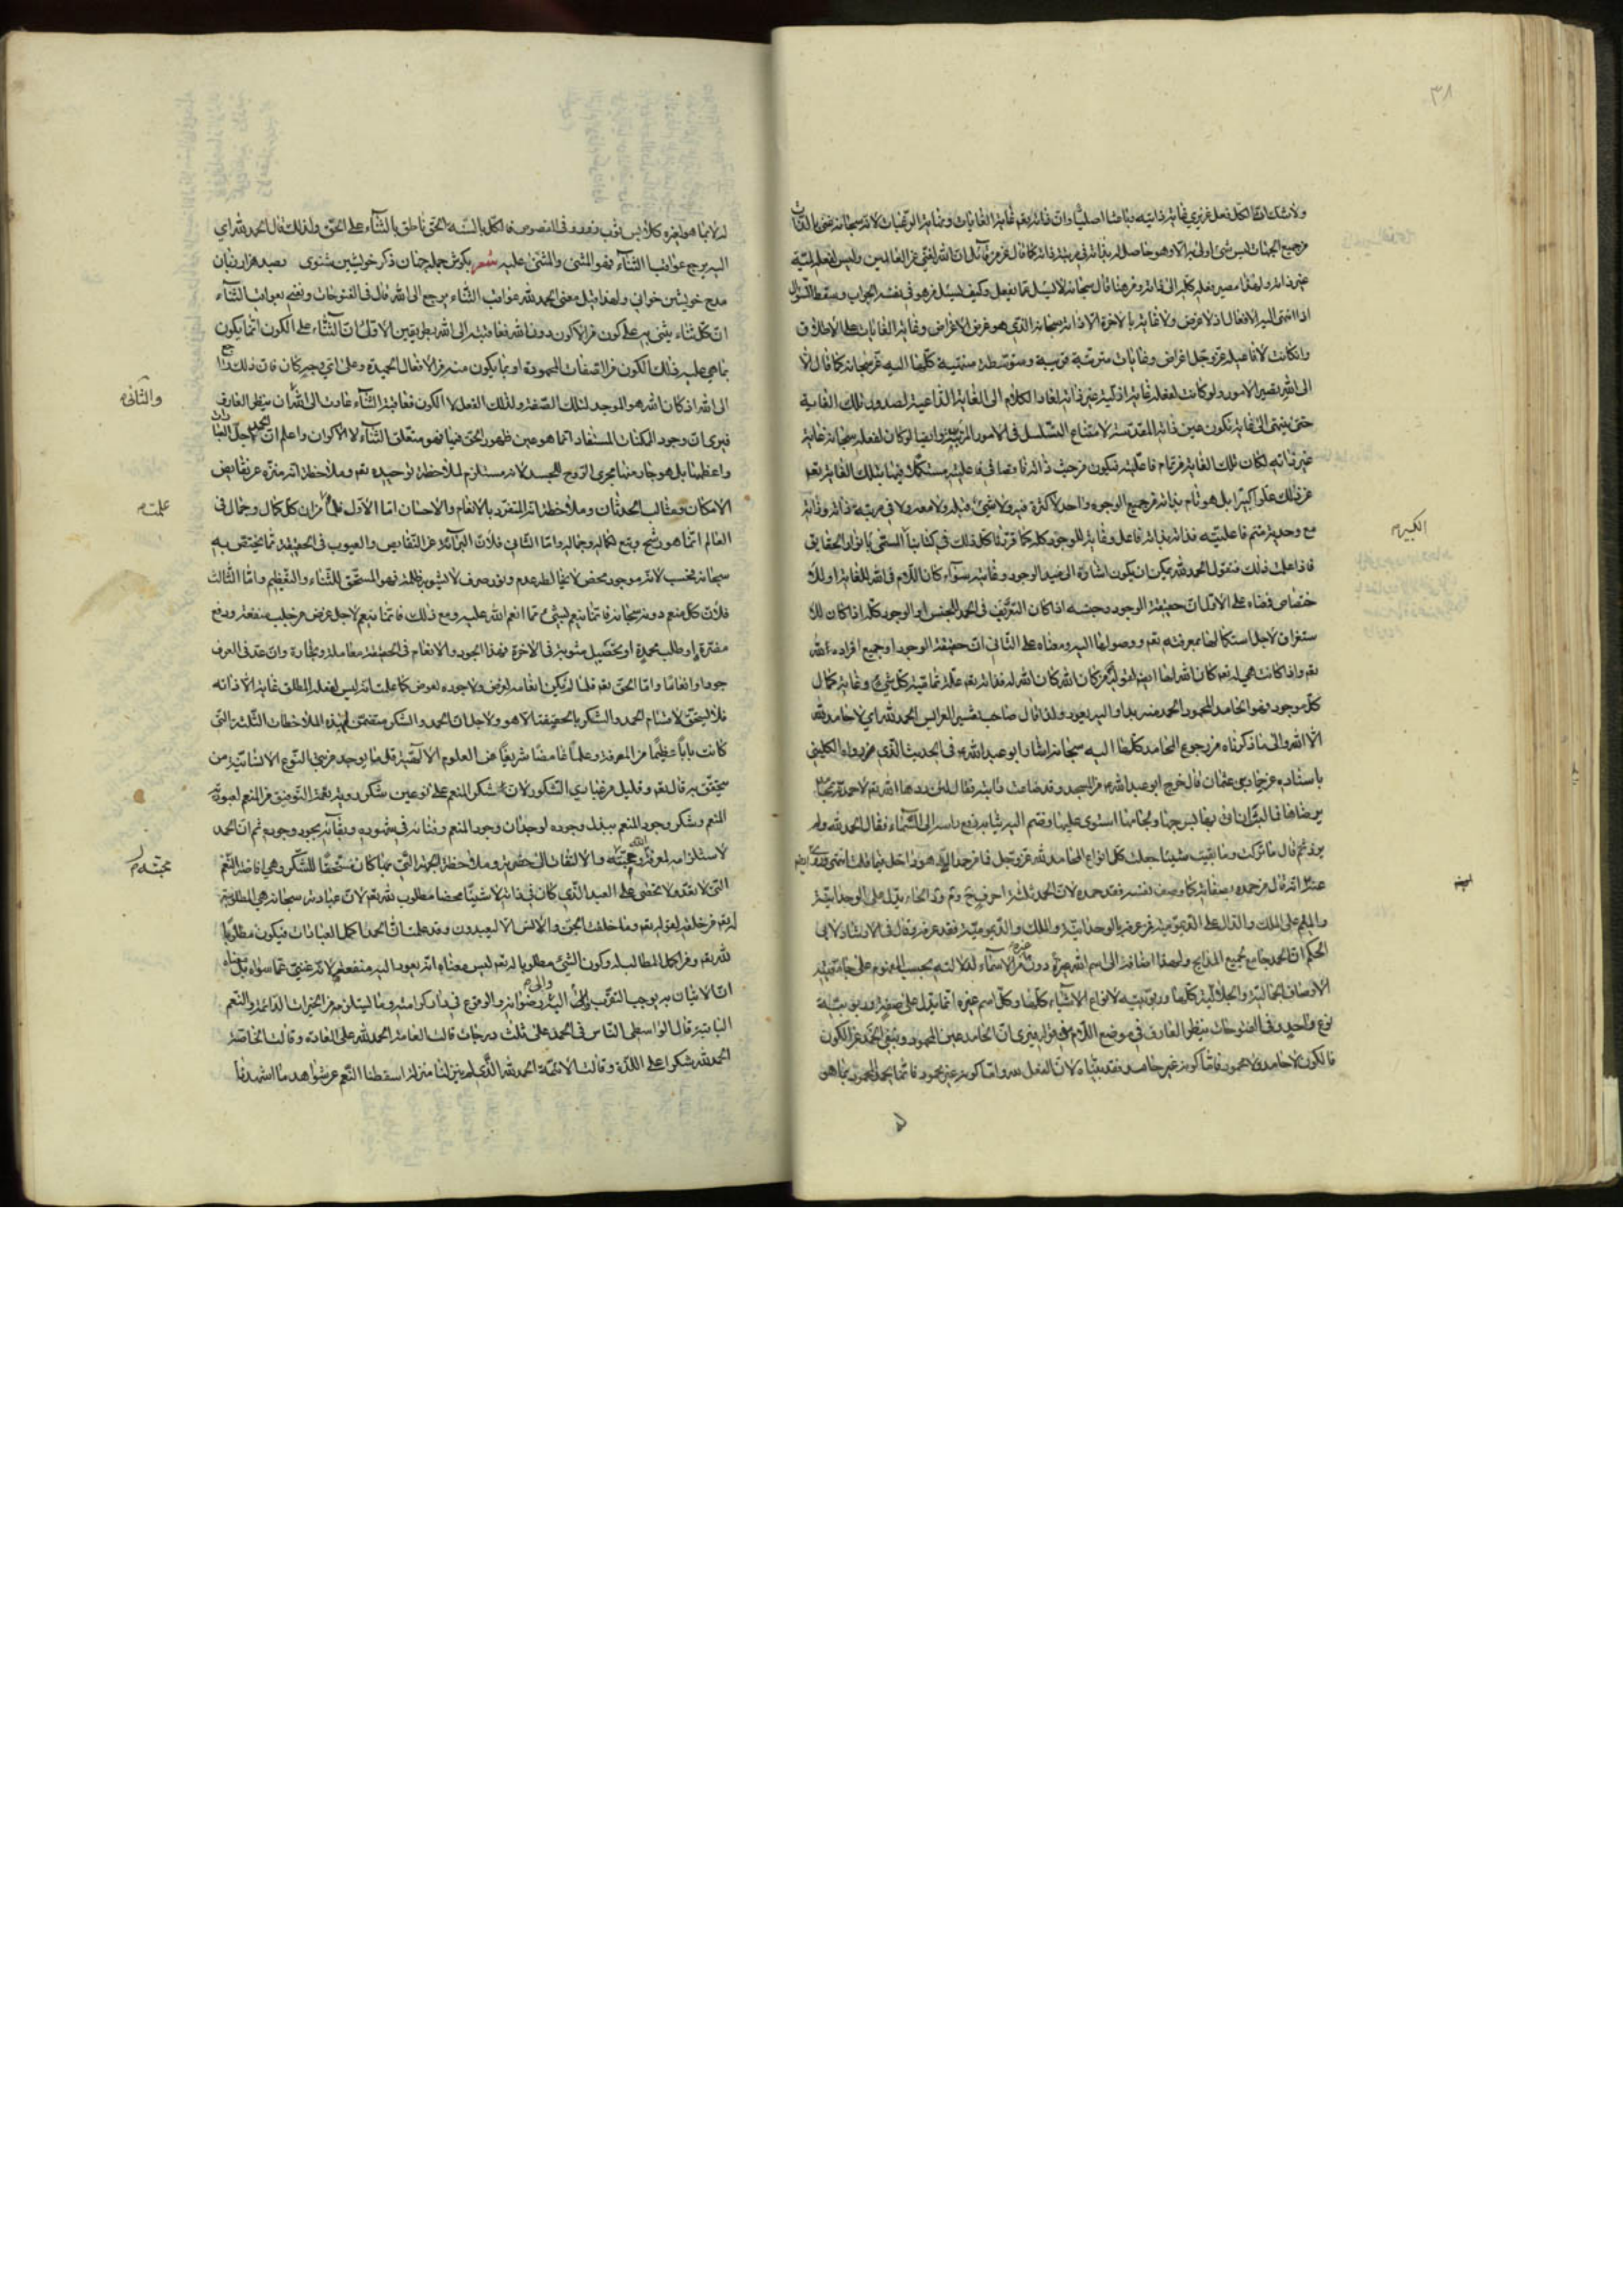 ٣٨
ولا شك ان لكل فعل غريزي غاية ذاتية وباعثا اصليا وان ذاته تعم غاية الغايات ونهاية الرغبات لانه سبحانه غني بالذات
من جميع الجهات ليس شئ اولى به الا وهو حاصل له بذاته في مرتبة ذاته كما قال عز من قائل ان الله لغني عن العالمين وليس لفعله لمية
غير ذاته ولهذا مصير فعله كله الى ذاته ومن هنا قال سبحانه لا يسئل عما يفعل وكيف يسئل من هو في نفسه الجواب وسقط السؤال
اذا انتهى اليه الافعال اذ لا غرض ولا غاية بالاخرة الا ذاته سبحانه الذي هو غرض الاغراض وغاية الغايات على الاطلاق
وان كانت لافاعيله عز وجل اغراض وغايات مترتبة قريبة ومتوسطة منتهية كلها اليه عز سبحانه كما قال الا
الى الله تصير الامور ولو كانت لفعله غاية اخيرة غير ذاته لعاد الكلام الى الغاية الداعية لصدور تلك الغاية
حتى ينتهي الى غاية تكون عين ذاته المقدسة لامتناع التسلسل في الامور المرتبة وايضا لو كان لفعله سبحانه غاية
غير ذاته لكان تلك الغاية من تمام فاعليته فيكون من حيث ذاته ناقصا في فاعليته مستكملا فيها بتلك الغاية تعم
عن ذلك علوا كبيرا بل هو تام بذاته من جميع الوجوه واحد لا كثرة فيه ولا شئ قبله ولا معه ولا في مرتبة ذاته وذاته
مع وحدته متمم فاعليته فذاته بذاته فاعل وغاية للوجود كله كما قررنا كل ذلك في كتابنا المسمى بانوار الحقايق
الكبير م
فاذا علمت ذلك فنقول الحمد لله يمكن ان يكون اشارة الى مبدء الوجود وغايته سواء كان اللام في لله للغاية او للا
ختصاص فمعناه على الاول ان حقيقة الوجود وجنسه اذا كان التعريف في الحمد للجنس او الوجود كله اذا كان للا
ستغراق لاجل استكمالها بمعرفته تعم ووصولها اليه ومعناه على الثاني ان حقيقة الوجود او جميع افراده لله
تعم واذا كانت هي له تعم كان الله لها ايضا لقوله من كان لله كان الله له فذاته تعم علة تمامية كل شئ وغاية كمال
كل موجود وهو الحامد المحمود الحمد منه بدا واليه يعود ولذا قال صاحب تفسير العرايس الحمد لله اي لا حامد لله
الا الله والى ما ذكرناه من رجوع المحامد كلها اليه سبحانه اشار ابو عبد الله ع في الحديث الذي رواه الكليني
باسناده عن حماد بن عثمان قال خرج ابو عبد الله ع من المسجد وقد ضاعت دابته فقال لئن ردها الله تعم لاحمدنه بمحامد
يرضاها فما لبث ان اتي بها بسرجها ولجامها استوى عليها وضم اليه ثيابه رفع راسه الى السماء فقال الحمد لله ولم
يزد ثم قال ما تركت وما بقيت شيئا جعلت كل انواع المحامد لله عز وجل فما من حمد الا وهو داخل فيما قلت انتهى
عنه انه قال من حمده بصفاته كما وصف نفسه فقد حمده لان الحمد ثلثة احرف ح وم ود الحاء يدل على الوحدانية
والميم على الملك والدال على الديمومية فمن عرفه بالوحدانية والملك والديمومية فقد عرفه وقال في الاستاد لابي
الحكم ان الحمد جامع لجميع المدايح ولهذا اضافه الى اسم الله دون غيره من الاسماء لدلالته بحسب المفهوم على جامعيته
الاوصاف الجمالية والجلالية كلها وربوبيته لانواع الاشياء كلها وكل اسم غيره انما يدل على صفة وربوبية
نوع واحد وفي الفتوحات ينظر العارف في موضع اللام في قوله لله فيرى ان الحامد عين المحمود وينفي الحمد عن الكون
فالكون لا حامد ولا محمود فاما كونه غير حامد فقد بيناه لان الفعل لله واما كونه غير محمود فانما يحمد المحمود بما هو
له لا بما هو لغيره كلابس ثوب زور وفي الفصوص فالكل بالسنة الحق ناطق بالثناء على الحق ولذلك قال الحمد لله اي
اليه يرجع عواقب الثناء فهو المثني والمثنى عليه شعر بكوش جمله جان ذكر خويشتن شنوى بصد هزار زبان
مدح خويشتن خوانى ولهذا قيل معنى الحمد لله عواقب الثناء يرجع الى الله قال في الفتوحات ونعني بعواقب الثناء
ان كل ثناء يثنى به على كون من الاكوان دون الله فعاقبته الى الله بطريقين الاول ان الثناء على الكون انما يكون
بما هي عليه ذلك الكون من الصفات المحمودة او بما يكون منه من الافعال الحميدة وعلى اي وجه كان فان ذلك راجع
الى الله اذ كان الله هو الموجد لتلك الصفة ولذلك الفعل لا الكون فعاقبة الثناء عادت الى الله ان ينظر العارف
والثاني
فيرى ان وجود الممكنات المستفاد انما هو عين ظهور الحق فيها فهو متعلق الثناء لا الاكوان واعلم ان الحمد اجل العبادات
واعظمها بل هو جار منها مجرى الروح للجسد لانه مستلزم لملاحظة توحيده تعم وملاحظة انه منزه عن نقايص
الامكان ومثالب الحدثان وملاحظة انه المتفرد بالانعام والاحسان اما الاول فلما من ان كل كمال وجمال في
علمت م
العالم انما هو رشح وتبع لكماله وجماله واما الثاني فلان البراءة عن النقايص والعيوب في الحقيقة مما يختص به
سبحانه فحسب لانه موجود محض لا يخالطه عدم ونور صرف لا يشوبه ظلمة فهو المستحق للثناء والتعظيم واما الثالث
فلان كل منعم دونه سبحانه فانما ينعم بشئ مما انعم الله عليه ومع ذلك فانما ينعم لاجل غرض من جلب منفعة ودفع
مضرة او طلب محمدة او تحصيل مثوبة في الاخرة فهذا الجود والانعام في الحقيقة معاملة وتجارة وان عد في العرف
جودا وانعاما واما الحق تعم فلما لم يكن انعامه لغرض ولا جوده لعوض كما علمت انه ليس لفعله المطلق غاية الا ذاته
فلا يستحق لاقسام الحمد والشكر بالحقيقة الا هو ولاجل ان الحمد والشكر متضمن لهذه الملاحظات الثلثة التي
كانت بابا عظيما من المعرفة وعلما غامضا شريفا من العلوم الالهية قل ما يوجد من بني النوع الانسانية من
يتحقق به قال تعم وقليل من عبادي الشكور لان شكر المنعم على نوعين شكر رؤية نعمة التوفيق من المنعم لعبوديته
المنعم وشكر وجود المنعم ببذل وجوده لوجدان وجود المنعم وفنائه في شهوده وبقائه بجود وجوده ثم ان الحمد
لاستلزامه لمعرفة الله ومحبته والالتفات الى حضرته وملاحظة الجهة التي بها كان مستحقا للشكر وهي افاضة النعم
محبته م
التي لا تعد ولا تحصى على العبد الذي كان في ذاته لا شيئا محضا مطلوب لله تعم لان عبادته سبحانه هي المطلوبة
له تعم من خلقه لقوله تعم وما خلقت الجن والانس الا ليعبدون وقد علمت ان الحمد اكمل العبادات فيكون مطلوبا
لله تعم ومن اكمل المطالب له وكون الشئ مطلوبا له تعم ليس معناه انه يعود اليه منفعته لانه غني عما سواه بل معناه
ان الاتيان به يوجب التقرب اليه والى رضوانه والوقوع في دار كرامته وما يستلزمه من الخيرات الدائمة والنعم
الباقية قال الواسطي الناس في الحمد على ثلث درجات قالت العامة الحمد لله على العادة وقالت الخاصة
الحمد لله شكرا على اللذة وقالت الائمة الحمد لله الذي لم ينزلنا منزلة اسقطنا النعم عن شواهد ما اشهدنا